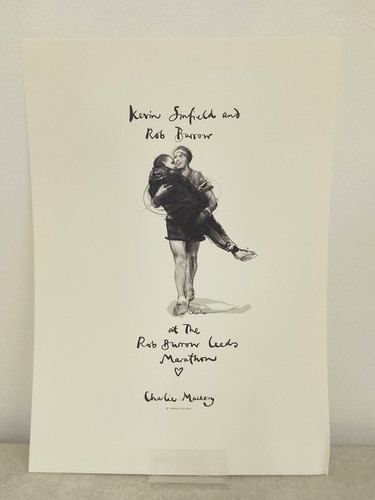 Kevin Sinfield and
Rob Burrow
Charlie
at The
Rob Burrow Leeds
Marathon
Charlie Mackesy